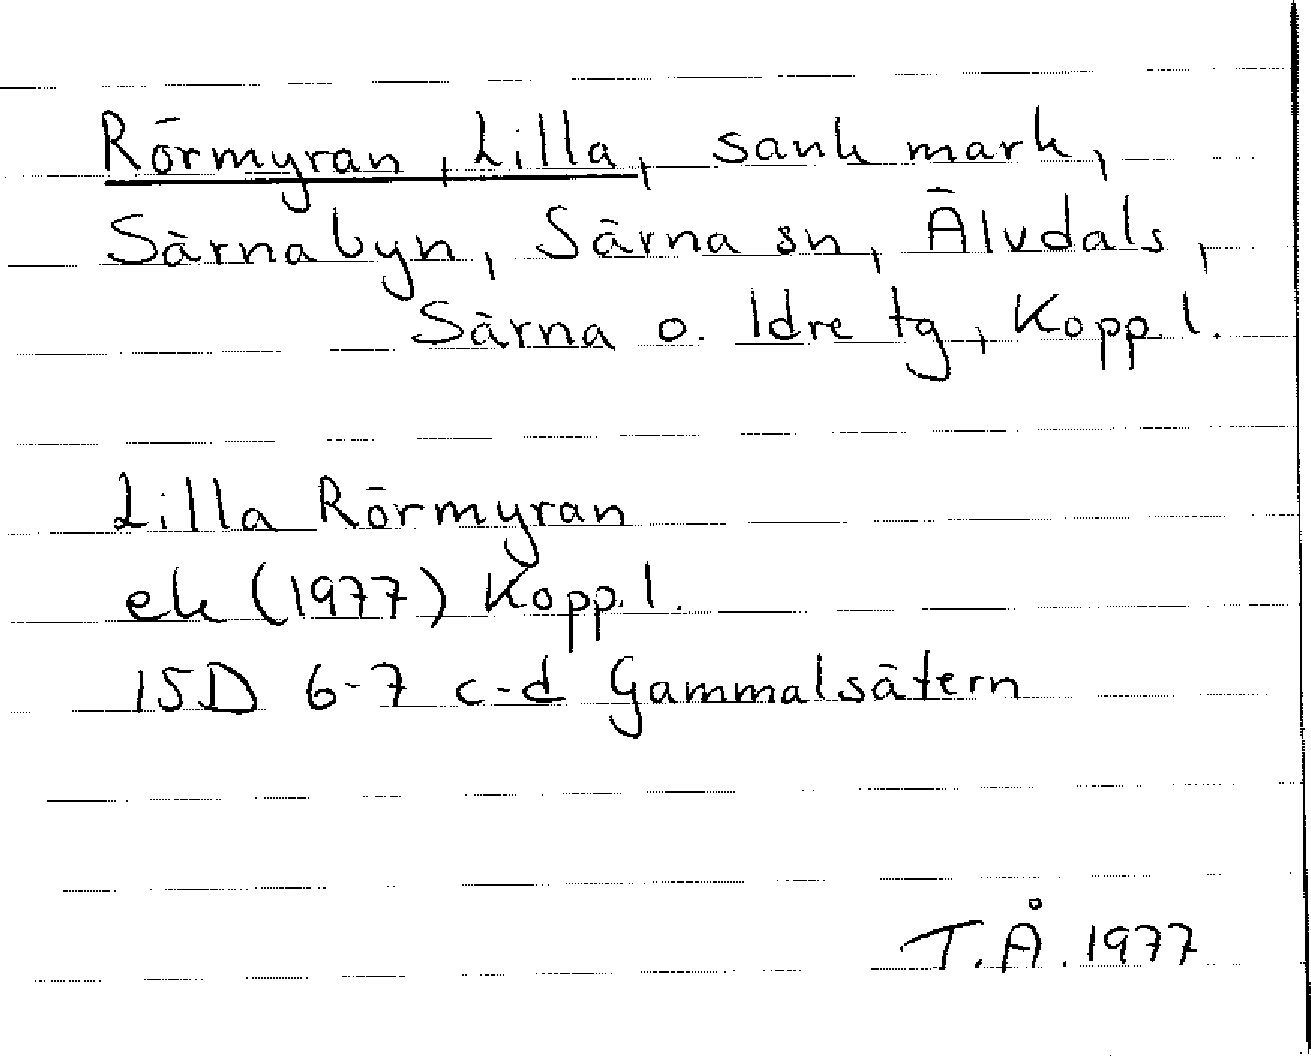 Rörmyran, Lilla, sank mark,
Särnabyn, Särna sn, Älvdals,
Särna o. Idre tg, Kopp. l.
Lilla Rörmyran
ek (1977) Kopp. l.
15D 6-7 c-d Gammalsätern
T.Å. 1977